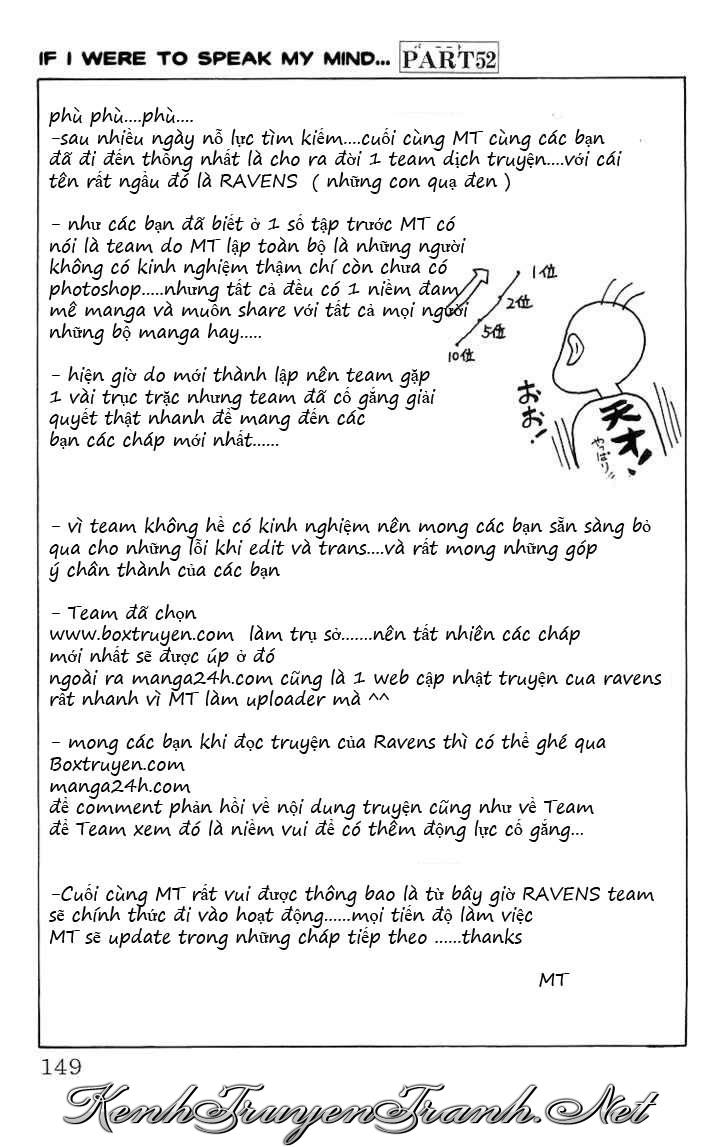 IF I WERE TO SPEAK MY MIND... PART52
phù phù....phù....
-sau nhiều ngày nỗ lực tìm kiếm....cuối cùng MT cùng các bạn
đã đi đến thống nhất là cho ra đời 1 team dịch truyện....với cái
tên rất ngầu đó là RAVENS ( những con quạ đen )
- như các bạn đã biết ở 1 số tập trước MT có
nói là team do MT lập toàn bộ là những người
không có kinh nghiệm thậm chí còn chưa có
photoshop.....nhưng tất cả đều có 1 niềm đam
mê manga và muôn share với tất cả mọi người
những bộ manga hay.....
1位
2位
5位
10位
- hiện giờ do mới thành lập nên team gặp
1 vài trục trặc nhưng team đã cố gắng giải
quyết thật nhanh để mang đến các
bạn các cháp mới nhất......
おお!
天才!
やっぱり!!
- vì team không hề có kinh nghiệm nên mong các bạn sẵn sàng bỏ
qua cho những lỗi khi edit và trans....và rất mong những góp
ý chân thành của các bạn
- Team đã chọn
www.boxtruyen.com làm trụ sở.......nên tất nhiên các cháp
mới nhất sẽ được úp ở đó
ngoài ra manga24h.com cũng là 1 web cập nhật truyện cua ravens
rất nhanh vì MT làm uploader mà ^^
- mong các bạn khi đọc truyện của Ravens thì có thể ghé qua
Boxtruyen.com
manga24h.com
để comment phản hồi về nội dung truyện cũng như về Team
để Team xem đó là niềm vui để có thêm động lực cố gắng...
-Cuối cùng MT rất vui được thông bao là từ bây giờ RAVENS team
sẽ chính thức đi vào hoạt động......mọi tiến độ làm việc
MT sẽ update trong những cháp tiếp theo ......thanks
MT
149
KenhTruyenTranh.Net